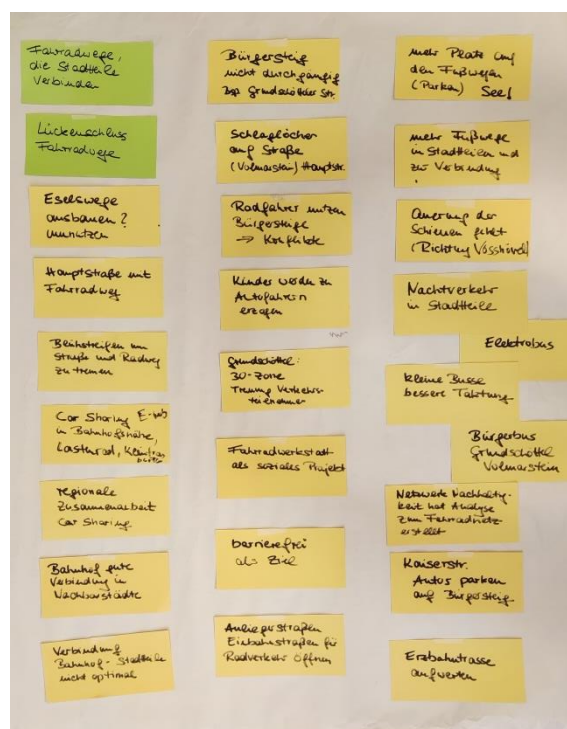 Fahrradwege,
die Stadtteile
Verbinden
Lückenschluss
Fahrradwege
Eselswege
ausbauen?
umnutzen
Hauptstraße mit
Fahrradweg
Blühstreifen um
Straße und Radweg
zu trennen
Car Sharing E-
in Bahnhofsnähe,
Lastenrad,
regionale
Zusammenarbeit
Car Sharing
Bahnhof gute
Verbindung in
Nachbarstädte
Verbindung
Bahnhof - Stadtteile
nicht optimal
Bürgersteig
nicht durchgängig
zsp Grundschötteler Str.
Schlaglöcher
auf Straße
(Volmarstein) Hauptstr.
Radfahrer nutzen
Bürgersteige
→ Konflikte
Kinder werden zu
Autofahrern
erzogen
Grundschöttel:
30-Zone
Trennung Verkehrs-
teilnehmer
Fahrradwerkstatt
als soziales Projekt
barrierefrei
als Ziel
Anliegerstraßen
Einbahnstraßen für
Radverkehr öffnen
mehr Platz auf
den Fußwegen
(Parken) See!
mehr Fußwege
in Stadtteilen und
zur Verbindung
!
Querung der
Schienen fehlt
(Richtung Vosshövel)
Nachtverkehr
in Stadtteile
Elektrobus
kleine Busse
bessere Taktung
Bürgerbus
Grundschöttel
Volmarstein
Netzwerk Nachhaltig-
keit hat Analyse
zum Fahrradnetz
erstellt
Kaiserstr.
Autos parken
auf Bürgersteig
Erzbahntrasse
aufwerten